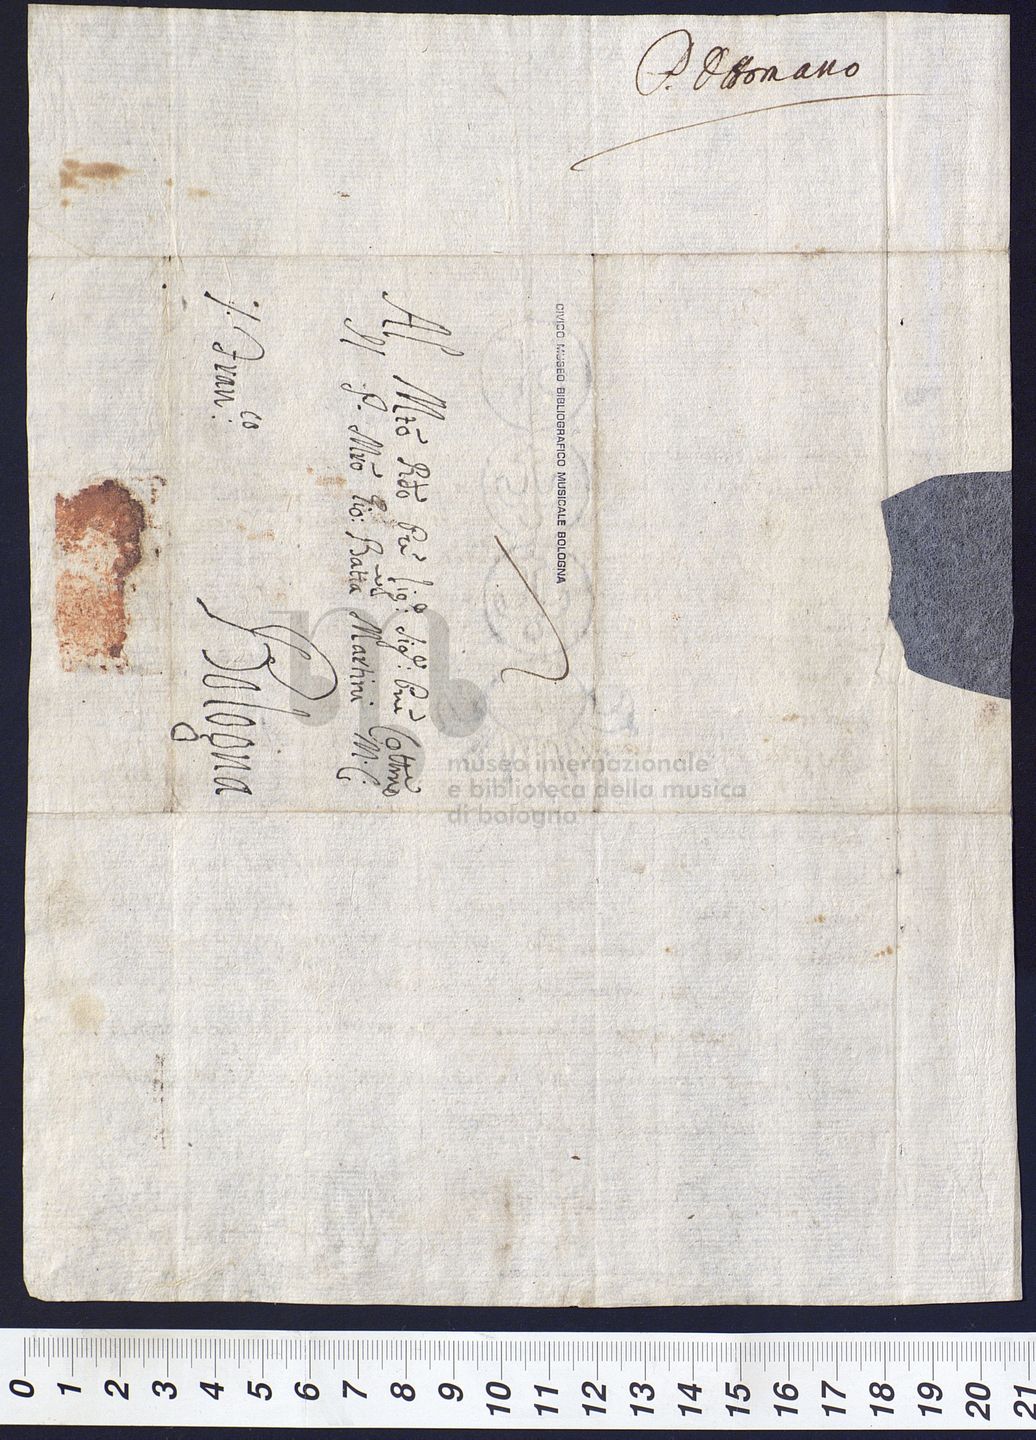 P. Ottomano
CIVICO MUSEO BIBLIOGRAFICO MUSICALE BOLOGNA
Al Mto Rdo Pre Sig: Sig: Pne Colmo
Il P. Mro Gio: Batta Martini M: C:
S. Fran:co
Bologna
museo internazionale
e biblioteca della musica
di bologna
0 1 2 3 4 5 6 7 8 9 10 11 12 13 14 15 16 17 18 19 20 21